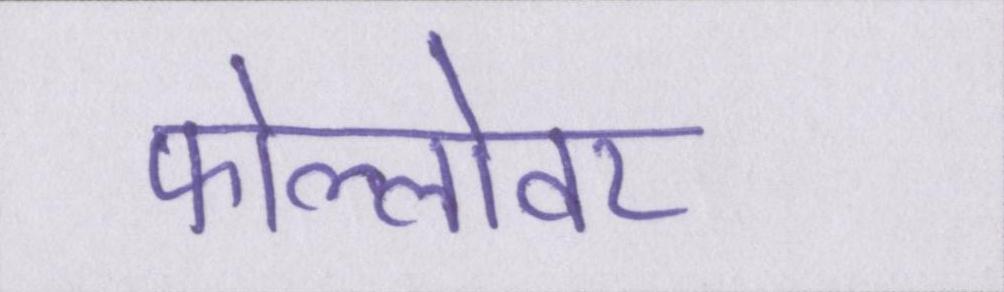 फोल्लोवर